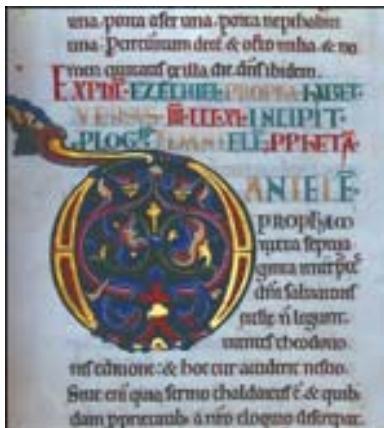 una. porta aser una. porta neptalim
una. Per circuitum decē & octo milia. & no
men civitatis ex illa die. dn̄s ibidem.
EXPLIC̄ EZECHIEL PROPHA HABET
VERSUS III CCCXL INCIPIT
PLOG̅ IN DANIELĒ PPHETĀ
DANIELĒ
PROPHETAM
iuxta septua
ginta interp̄tes
dn̄i salvatoris
eccl̄e n̄ legunt.
utentes theodotio
nis editione. & hoc cur acciderit nescio.
Sive enī quia sermo chaldaicus ē. & quibus
dam proprietatib. a nr̄o eloquio discrepat.